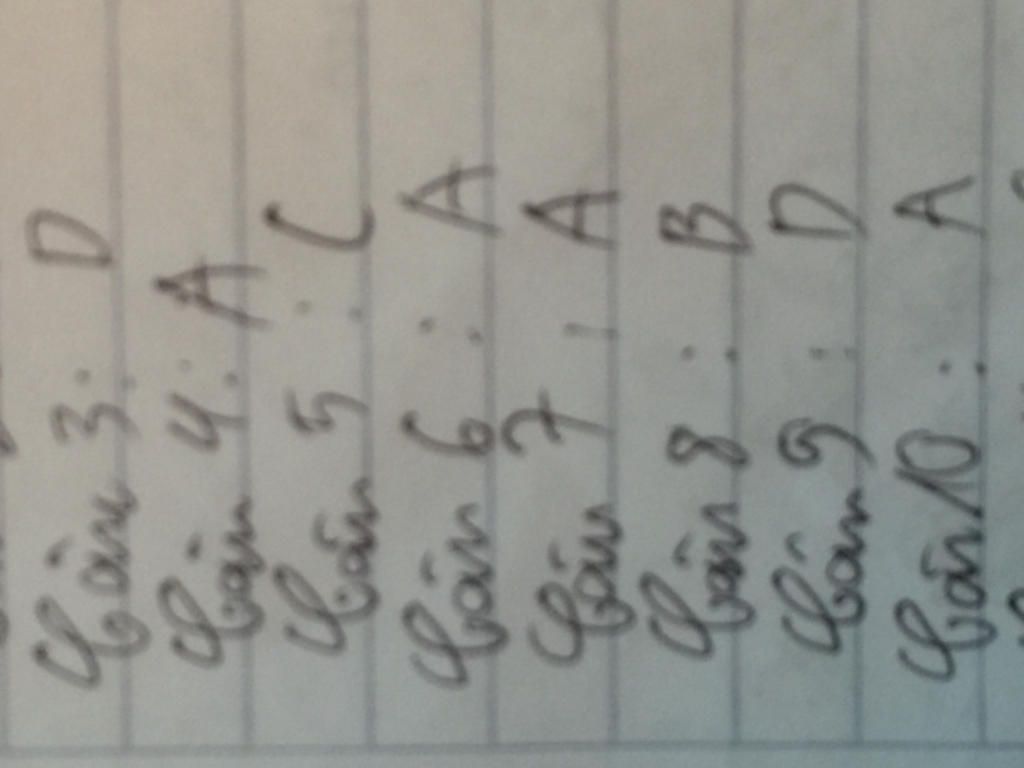 Câu 3: D
Câu 4: A
Câu 5: C
Câu 6: A
Câu 7: A
Câu 8: B
Câu 9: D
Câu 10: A